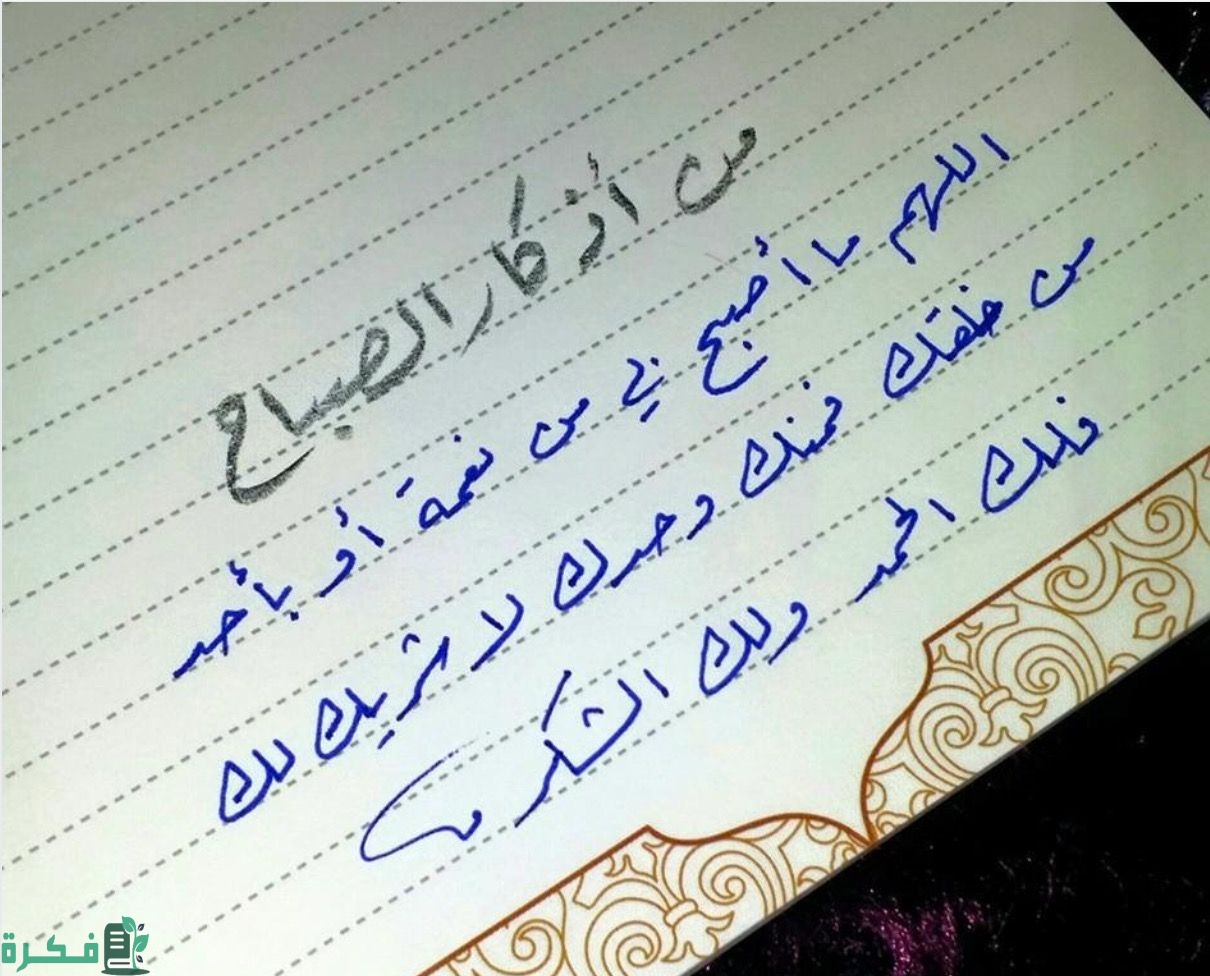 من أذكار الصباح
اللهم ما أصبح بي من نعمة أو بأحد
من خلقك فمنك وحدك لا شريك لك
فلك الحمد ولك الشكر
فكرة